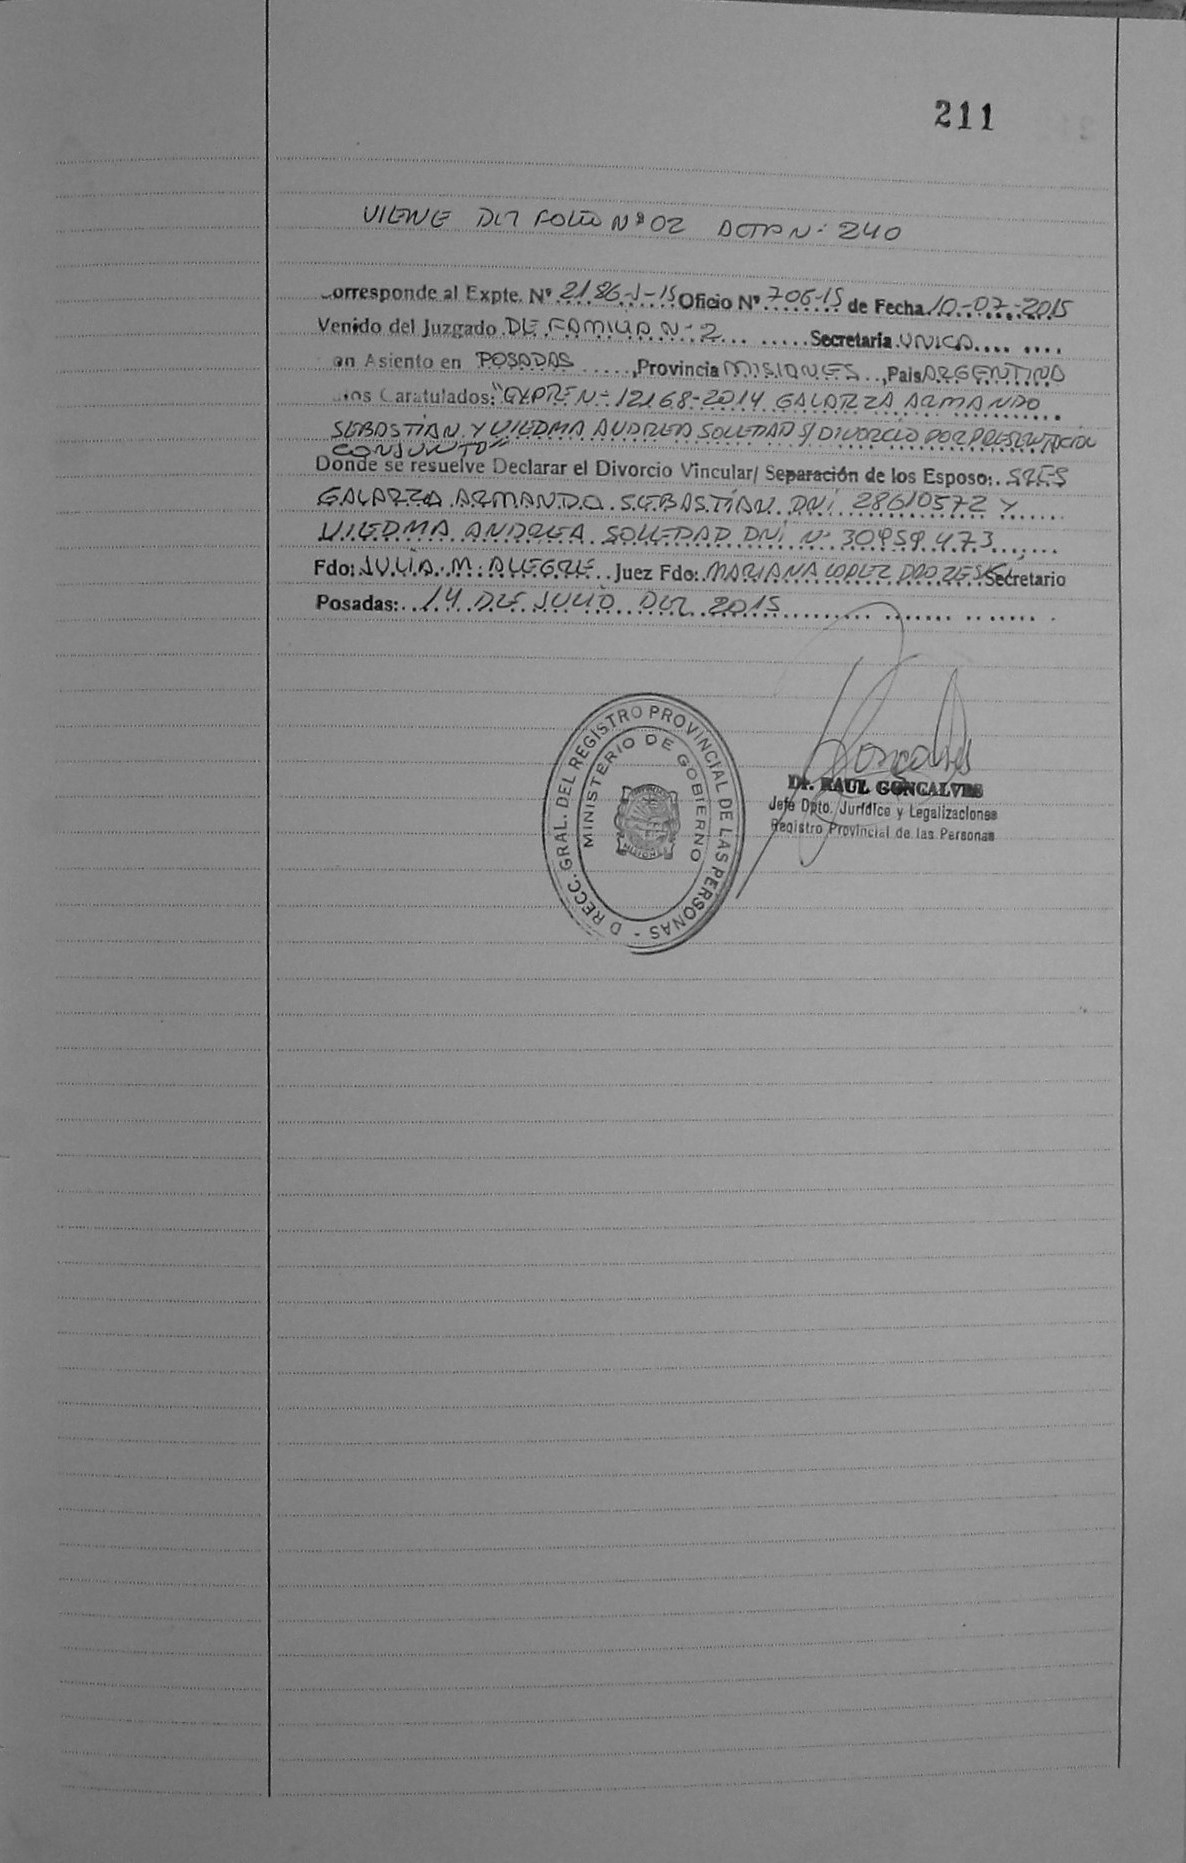 211
VIENE DEL FOLIO Nº 02 ACTA N: 240
orresponde al Expte. Nº 2186-J-15 Oficio Nº 706-15 de Fecha 10-07-2015
Venido del Juzgado DE FAMILIA N-2 Secretaria UNICA
on Asiento en POSADAS, Provincia MISIONES, Pais ARGENTINA
tos Caratulados: "EXPTE N- 12168-2014 GALARZA ARMANDO
SEBASTIÁN Y VIEDMA ANDREA SOLEDAD S/ DIVORCIO POR PRESENTACIÓN
CONJUNTO"
Donde se resuelve Declarar el Divorcio Vincular/ Separación de los Esposo: SRES
GALARZA ARMANDO SEBASTÍAN DNI 28610572 Y
VIEDMA ANDREA SOLEDAD DNI Nº 30959473
Fdo: JULIA M. ALEGRE Juez Fdo: MARIANA LOPEZ Secretario
Posadas: 14 DE JULIO DEL 2015
DIRECC. GRAL. DEL REGISTRO PROVINCIAL DE LAS PERSONAS -
MINISTERIO DE GOBIERNO
MISIONES
Goncalves
Dr. RAUL GONCALVES
Jefe Dpto. Jurídico y Legalizaciones
Registro Provincial de las Personas